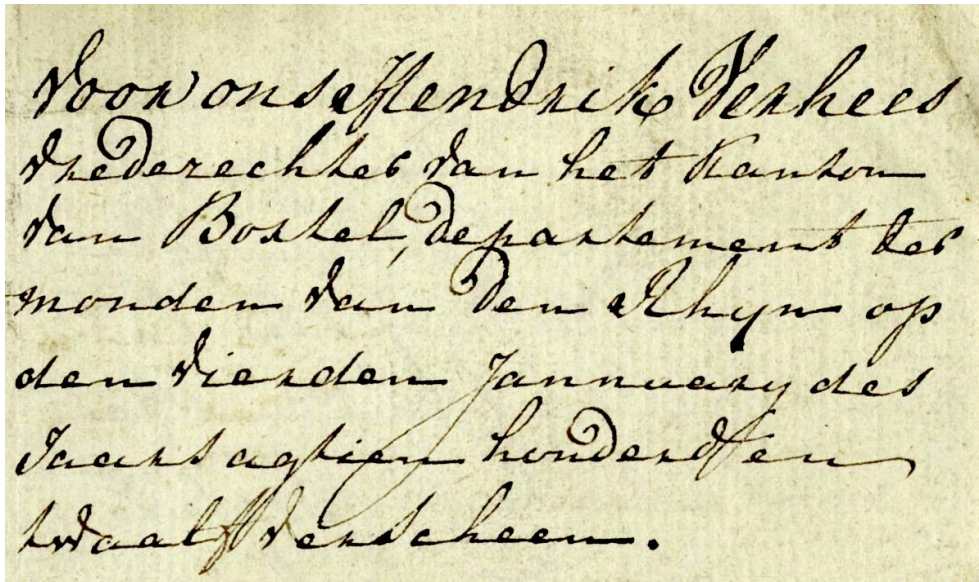 Voor ons Hendrik Verhees
vrederechter van het Kanton
van Boxtel, departement der
monden van den Rhyn op
den vierden Jannuary des
Jaars agtien honderd en
twaalf verscheen.